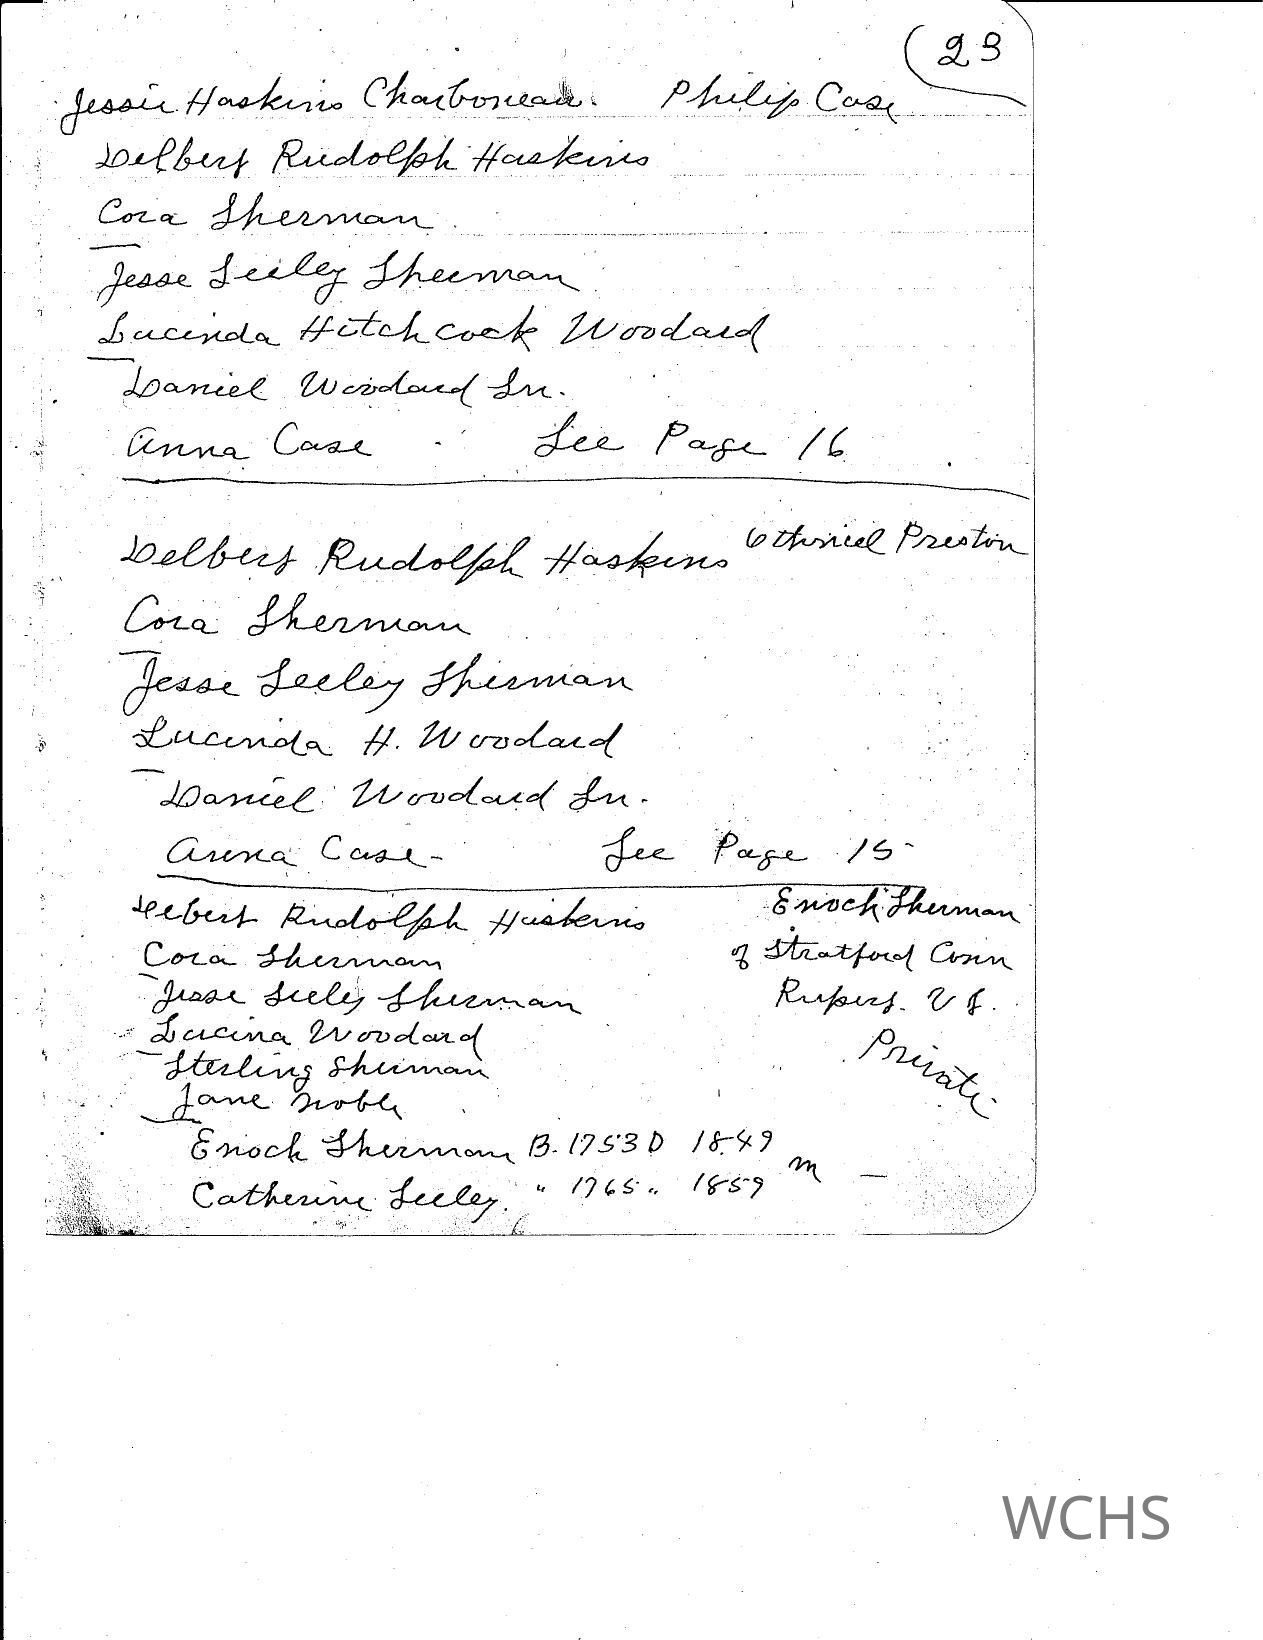 23
Jessie Haskins Charboneau. Philip Case
Delbert Rudolph Haskins
Cora Sherman
Jesse Seeley Sherman
Lucinda Hitchcock Woodard
Daniel Woodard Sr.
Anna Case See Page 16
Delbert Rudolph Haskins Othniel Preston
Cora Sherman
Jesse Seeley Sherman
Lucinda H. Woodard
Daniel Woodard Sr.
Anna Case - See Page 15
Delbert Rudolph Haskins Enoch Sherman
Cora Sherman of Stratford Conn
Jesse Seeley Sherman Rupert. Vt.
Lucina Woodard Private
Sterling Sherman
Jane Noble
Enoch Sherman B. 1753 D 1849
Catherine Seeley. " 1765 " 1859 m —
WCHS